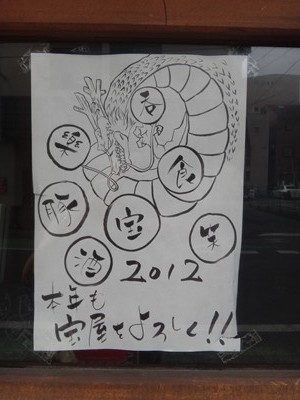 呑
樂
食
豚
宝
笑
酒
2012
本年も
宝屋をよろしく!!